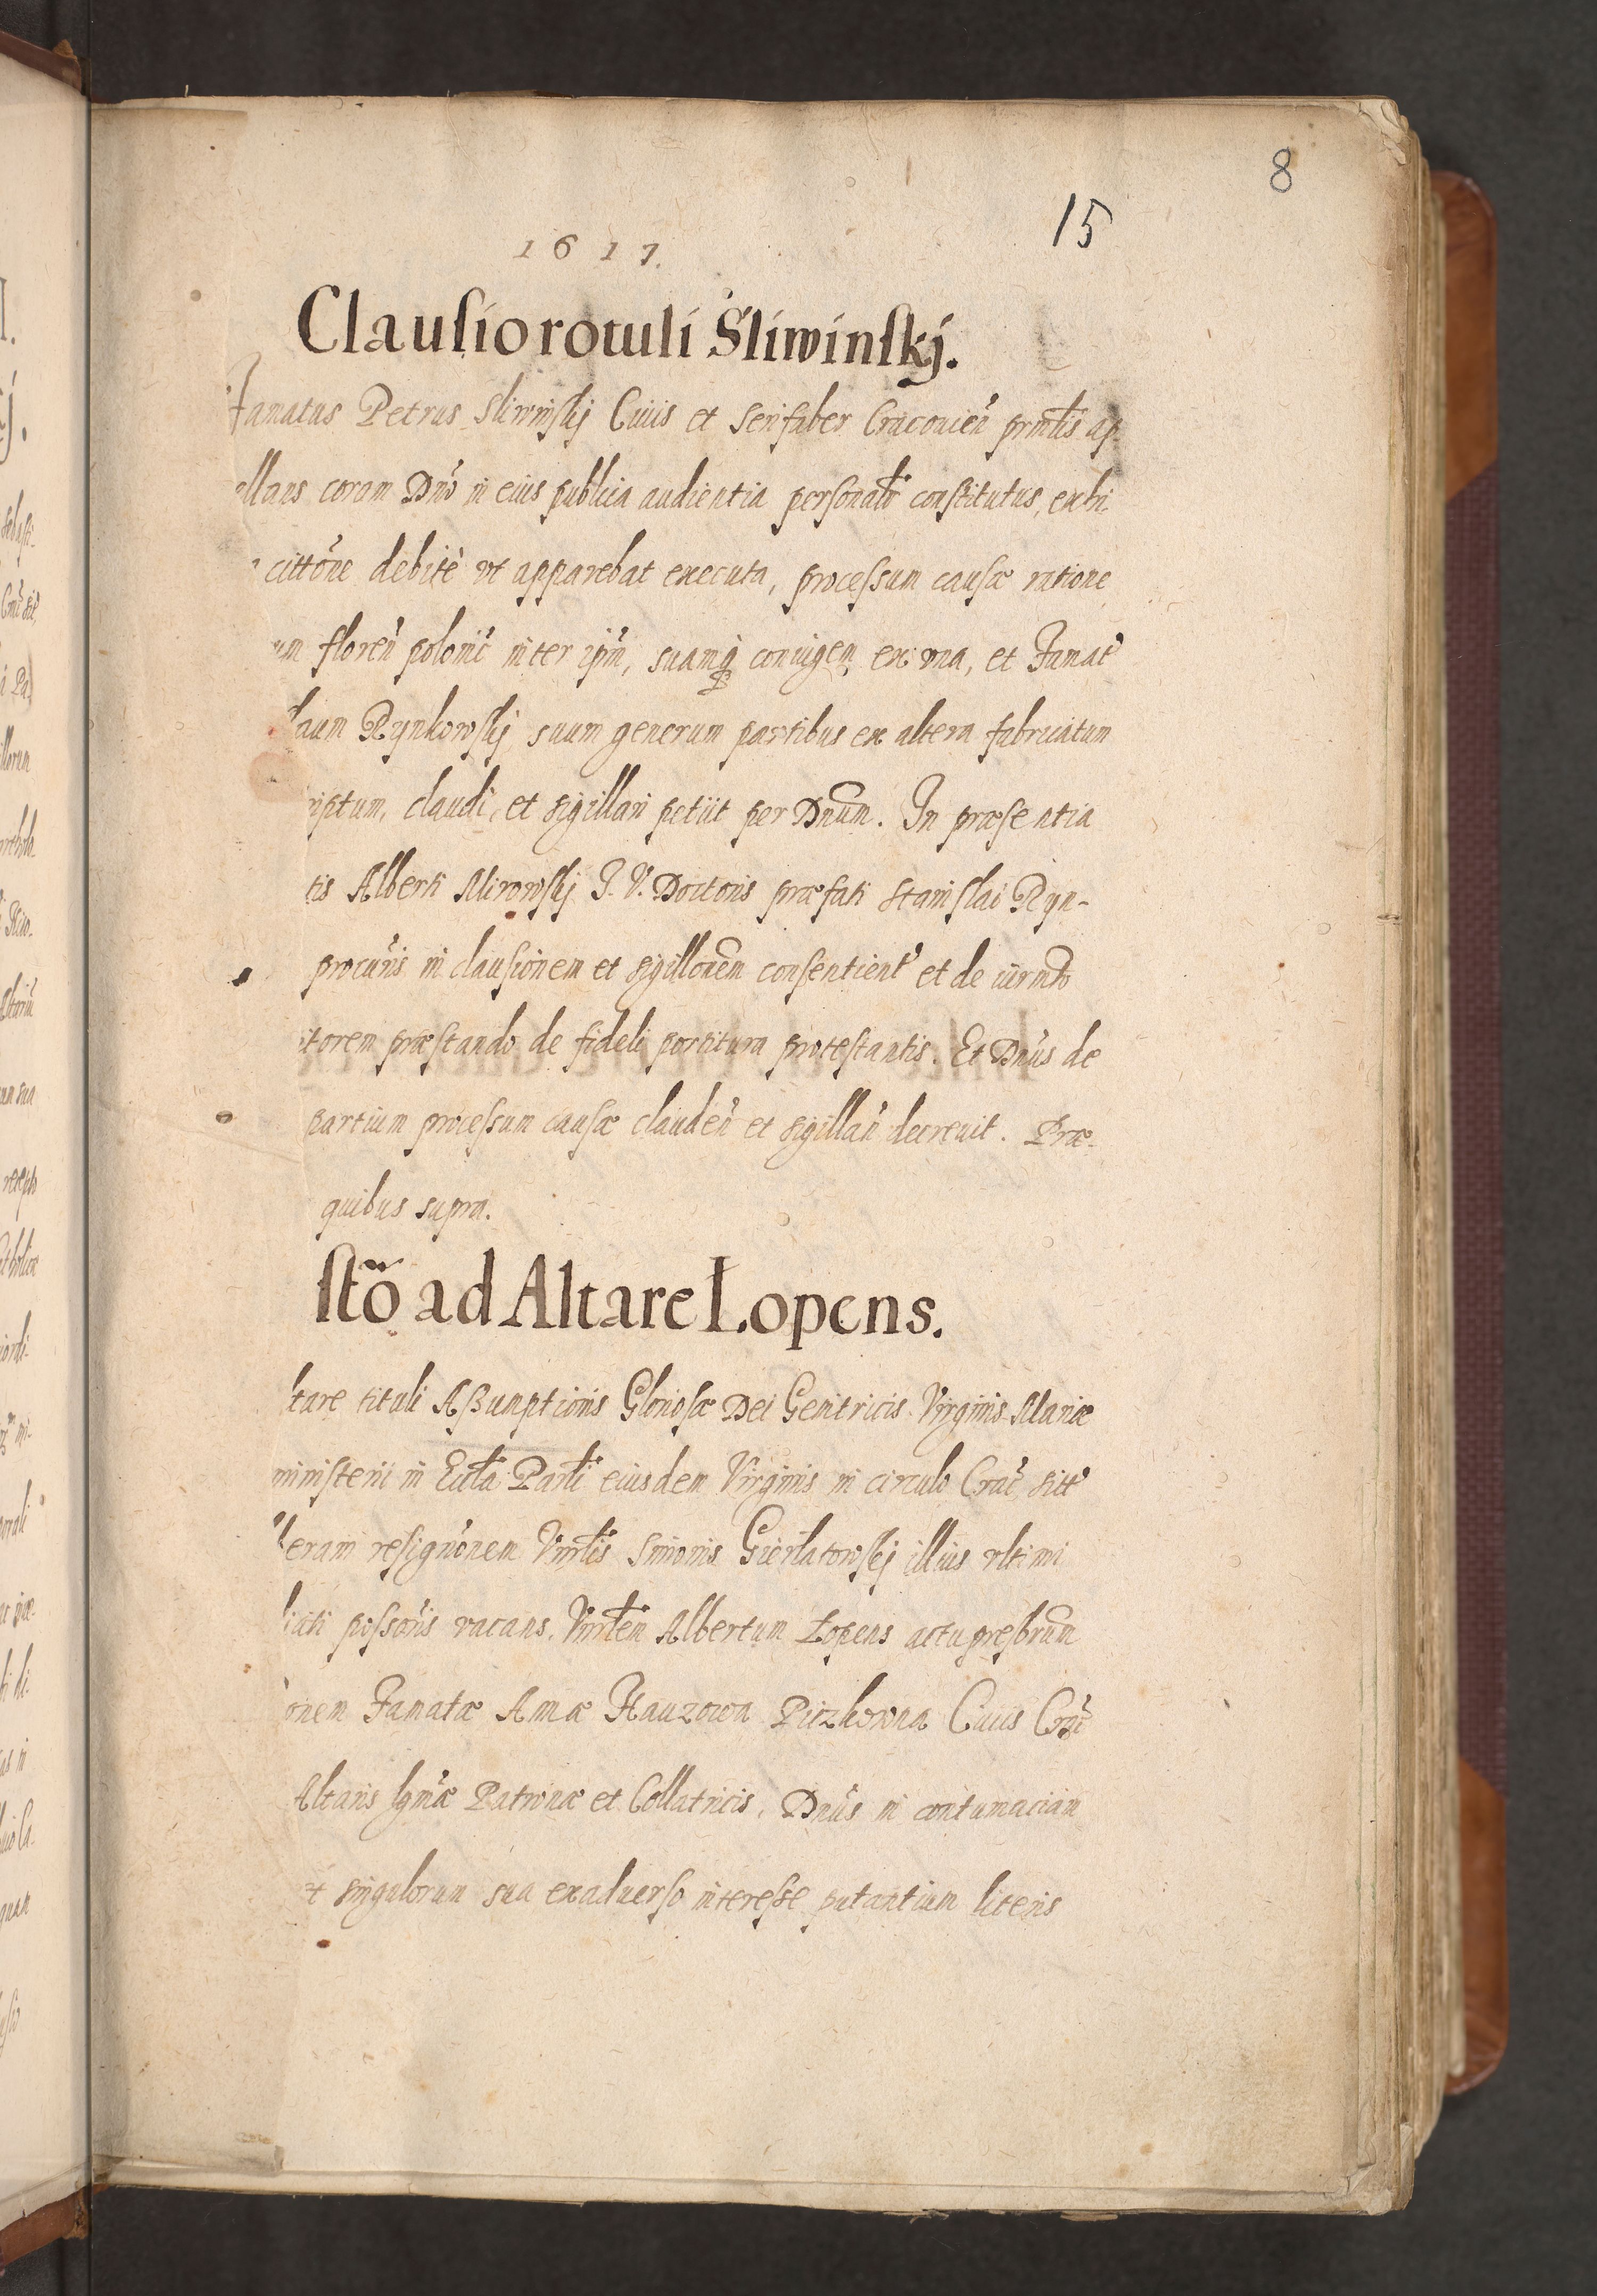 8
15
1617.
Clausio rotuli Śliwinskj.
Famatus Petrus Sliwinskj Ciuis et Serifaber Cracouien̄ prin̄tis ap
llans coram Dn̄o in eius publica audientia personal̄r constitutus, exhi
citt̄one debitè vt apparebat executa, processum causæ ratione
um floren̄ polonic̄ inter ip̄m, suamq̨ coniugem ex vna, et Famat̄
laum Rynkowskj suum generum partibus ex altera fabricatum
riptum, claudi, et sigillari petiit per Dn̄um. In præsentia
tis Alberti Mirowskj J. V. Doctoris præfati Stanislai Ryn-
procūris in clausionem et sigillōnem consentient̄ et de iūrmto
itorem præstando de fideli portitura protestantis. Et Dn̄us de
partium processum causæ clauden̄ et sigillan̄ decreuit. Præ-
quibus supra.
stō ad Altare Lopens.
ltare tituli Assumptionis Gloriosæ Dei Genitricis Virginis Mariæ
ministerii in Eccl̄a Par̄li eiusdem Virginis in circulo Crac̄ sitt̄
eram resignōnem Vnr̄lis Simonis illius vltimi
possōris vacans, Vnr̄lem Albertum Łopens actu presbr̄um
onem Famatæ Annæ Hauzowa Piczkowna Ciuis Crac̄
Altaris lgm̄æ Patronæ et Collatricis, Dn̄us in contumaciam
et singulorum sua exaduerso interesse putantium literis